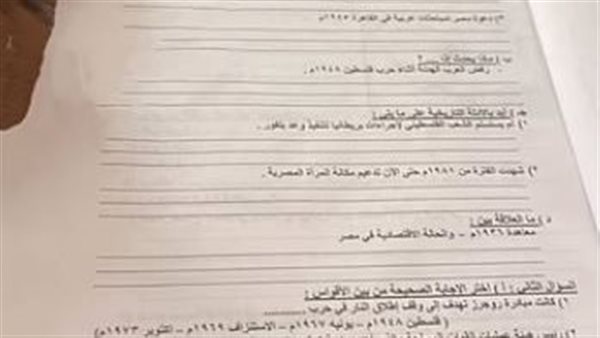 ٣) دعوة مصر لمباحثات عربية في القاهرة ١٩٤٥م
ب) ماذا يحدث لو .... ؟
رفض العرب الهدنة أثناء حرب فلسطين ١٩٤٨م .
جـ) أيد بالأدلة التاريخية على ما يلي :
١) لم يستسلم الشعب الفلسطيني لإجراءات بريطانيا لتنفيذ وعد بلفور.
٢) شهدت الفترة من ١٩٨١م حتى الآن تدعيم مكانة المرأة المصرية .
د) ما العلاقة بين :
معاهدة ١٩٣٦م – والحالة الاقتصادية في مصر
السؤال الثاني : أ) اختر الإجابة الصحيحة من بين الأقواس :
١) كانت مبادرة روجرز تهدف إلى وقف إطلاق النار في حرب ............
( فلسطين ١٩٤٨م – يونيه ١٩٦٧م – الاستنزاف ١٩٦٩م – أكتوبر ١٩٧٣م )